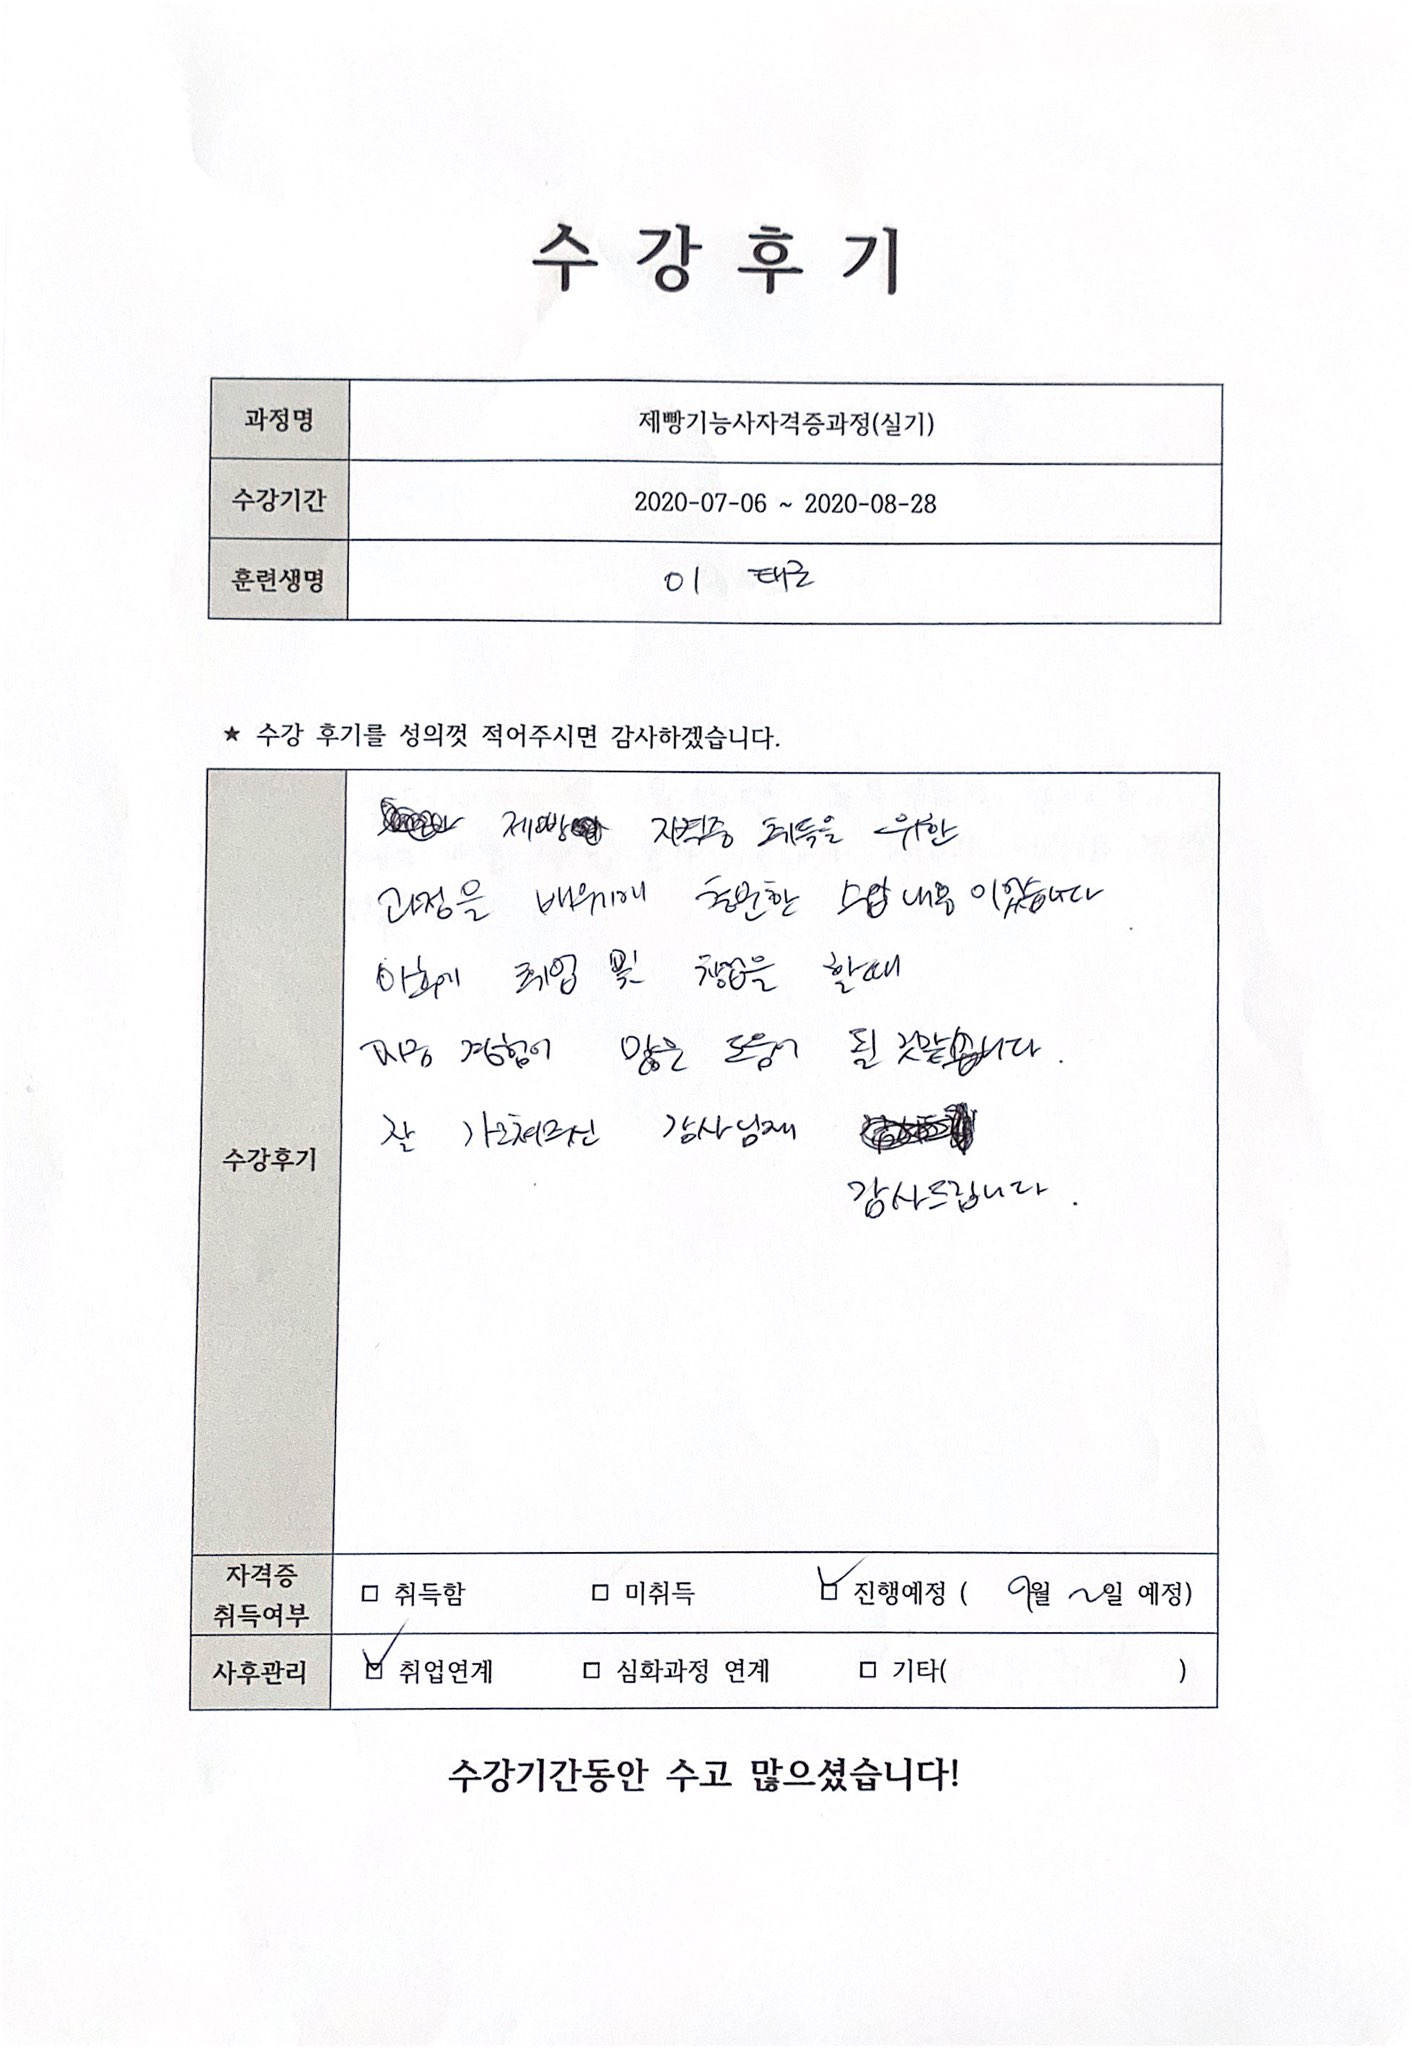 수 강 후 기
과정명 제빵기능사자격증과정(실기)
수강기간 2020-07-06 ~ 2020-08-28
훈련생명 이 태근
★ 수강 후기를 성의껏 적어주시면 감사하겠습니다.
수강후기
제빵 자격증 취득을 위한
과정을 배우기에 충분한 수업 내용 이었습니다
이후에 취업 및 창업을 할때
지금 경험이 많은 도움이 될 것같습니다.
잘 가르쳐주신 강사님께
감사드립니다.
자격증 취득여부 □ 취득함 □ 미취득 ☑ 진행예정 ( 9월 2일 예정)
사후관리 ☑ 취업연계 □ 심화과정 연계 □ 기타( )
수강기간동안 수고 많으셨습니다!